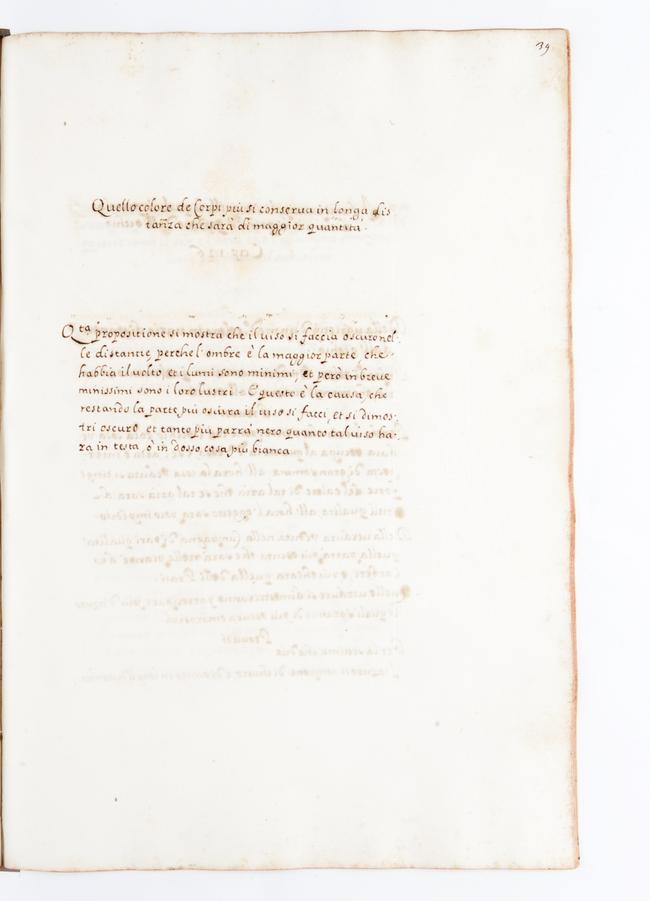 39
Quello colore de Corpi piu si conserua in longa dis
tanza che sarà di maggior quantità.
Cap. 126
Qta propositione si mostra che il uiso si faccia oscuro nel-
le distantie, perche l'ombre è la maggior parte che
habbia il uolto, et i lumi sono minimi, et però in breue
minissimi sono i loro lustri. E questo è la causa, che
restando la parte piú oscura il uiso si facci, et si dimos-
tri oscuro et tanto piu parrà nero quanto tal uiso ha-
rà in testa, ò in dosso cosa piú bianca